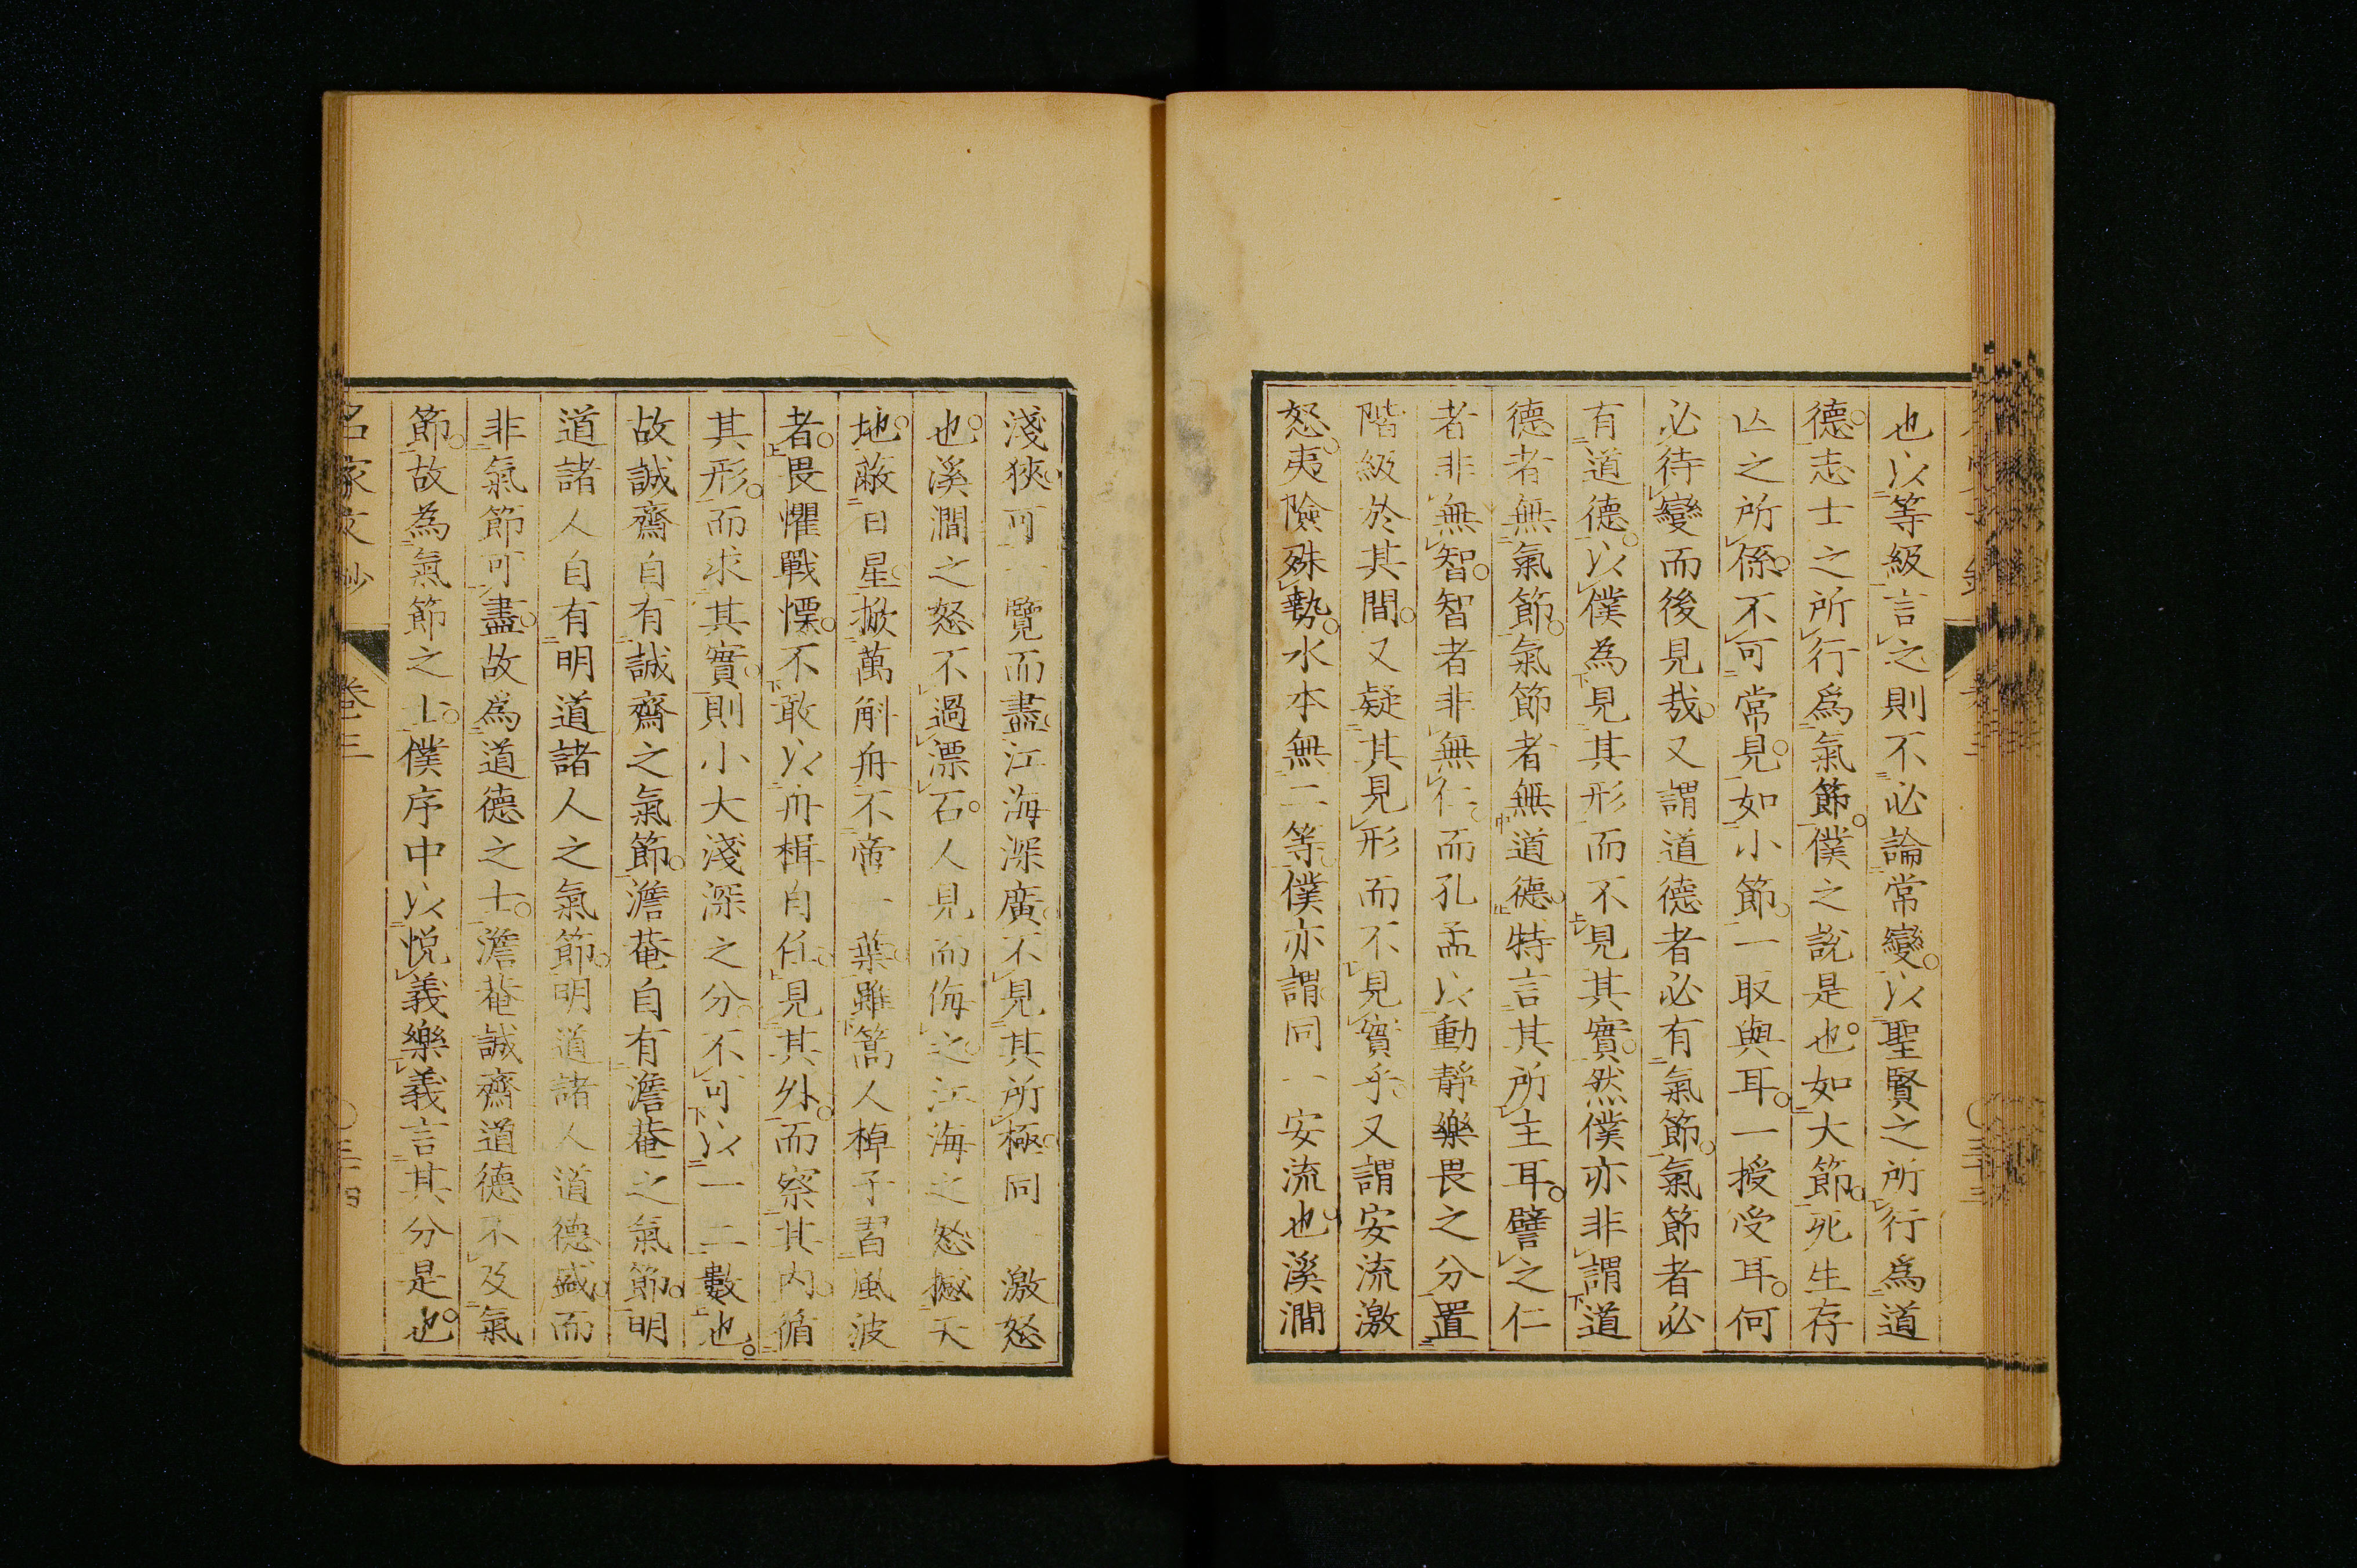 也以等級言之則不必論常變以聖賢之所行爲道
德志士之所行爲氣節僕之說是也如大節死生存
亾之所係不可常見如小節一取與耳一授受耳何
必待變而後見哉又謂道德者必有氣節氣節者必
有道德以僕為見其形而不見其實然僕亦非謂道
德者無氣節氣節者無道德特言其所主耳譬之仁
者非無智智者非無仁而孔孟以動靜樂畏之分置
階級於其間又疑其見形而不見實乎又謂安流激
怒夷險殊勢水本無二等僕亦謂同一安流也溪澗
淺狹可一覽而盡江海深廣不見其所極同一激怒
也溪澗之怒不過漂石人見而侮之江海之怒撼天
地蔽日星掀萬斛舟不啻一葉雖篙人棹子習風波
者畏懼戰慄不敢以舟楫自任見其外而察其內循
其形而求其實則小大淺深之分不可以一二數也
故誠齋自有誠齋之氣節澹菴自有澹菴之氣節明
道諸人自有明道諸人之氣節明道諸人道德盛而
非氣節可盡故爲道德之士澹菴誠齋道德不及氣
節故為氣節之士僕序中以悅義樂義言其分是也
名家文抄 卷三 〇三十四